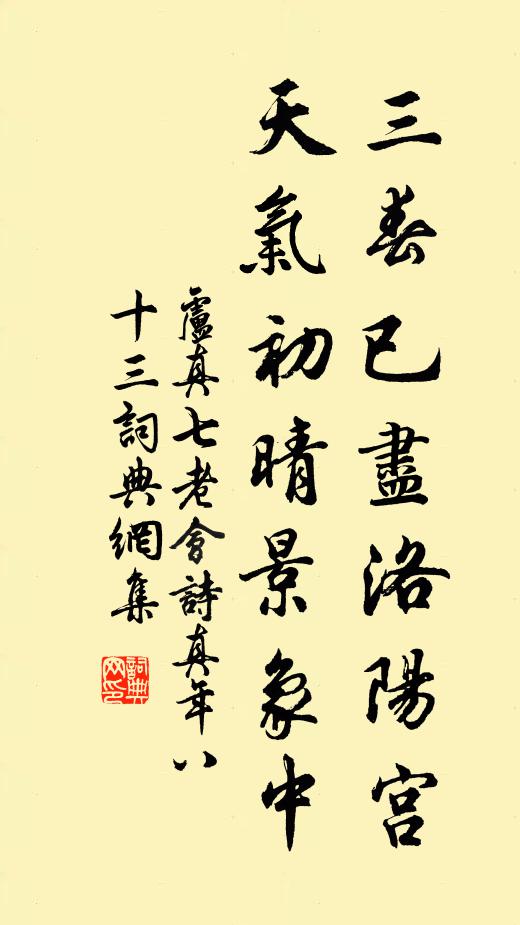 三春已盡洛陽宮
天氣初晴景象中
盧真七老會詩真年八
十三詞典網集
詞典
网印